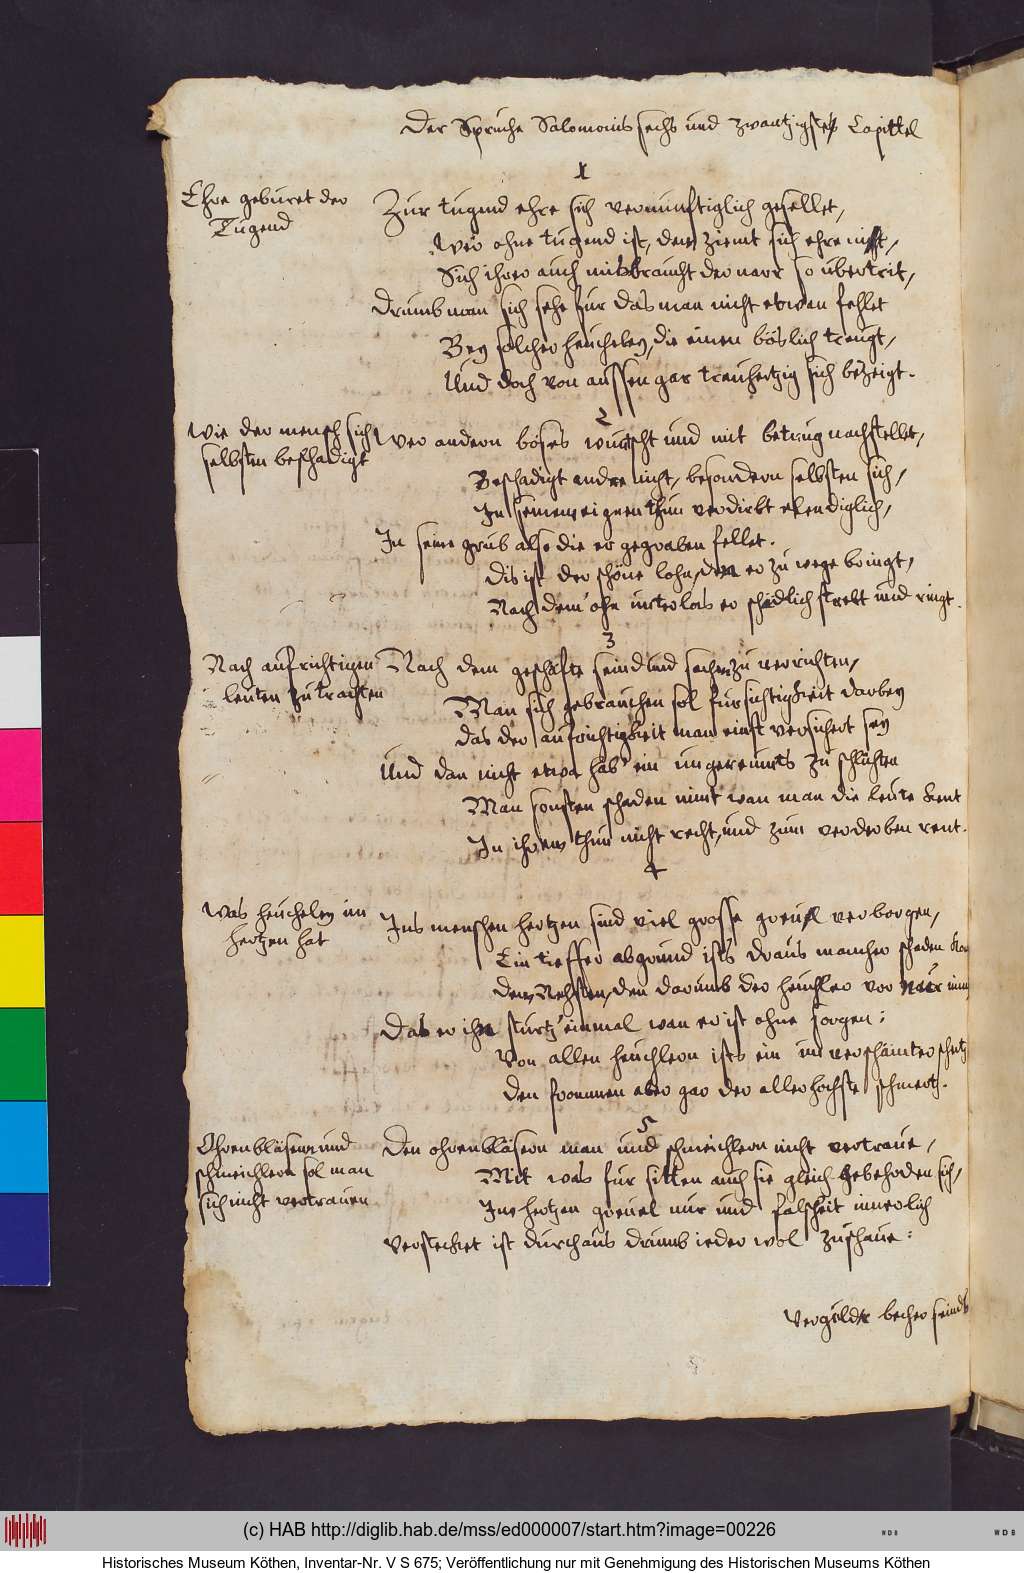 Der Spruche Salomonis sechs und zwantzigstes Capittel
1
Ehre geburet der
Tugend
Zur tugend ehre sich vernunftiglich gesellet,
Wer ohne tugend ist, dem ziemt sich ehre nicht,
Sich ihrer auch misbraucht der narr so ubertrit,
Drumb man sich sehe fur das man nicht etwan fehlet
Bey solcher heucheley, die einen böslich treugt,
Und doch von aussen gar treuhertzig sich bezeigt.
2
Wie der mensch sich
selbsten beschadigt
Wer andern böses wunscht und mit betrug nachstellet,
Beschadigt andre nicht, besondern selbsten sich,
In seinem eignen thun verdirbt elendiglich,
In seine grub also die er gegraben fellet.
Dis ist der schöne lohn, den er zu wege bringt,
Nach dem ohn unterlas er schädlich strebt und ringt.
3
Nach aufrichtigen
leuten zu trachten
Nach dem geschäfte seind und sachen zu verrichten,
Man sich gebrauchen sol fursichtigkeit darbey
Das der aufrichtigkeit man einst versichert sey
Und dan nicht etwa hab' ein ungereumts zu schlichten
Man sonsten schaden nimt wan man die leute kent
In ihrem thun nicht recht, und zum verderben rent.
4
Was heucheley im
hertzen hat
Ins menschen hertzen sind viel grosse greuel verborgen,
Ein tieffer abgrund ists draus mancher schaden
Dem Nehsten, den darumb der heuchler vor
Das er ihn sturtz' einmal wan er ist ohne sorgen:
Von allen heuchlern ists ein unverschämter schertz
Den frommen aber gar der allerhochste schmertz.
5
Ohrenbläsern und
schmeichlern sol man
sich nicht vertrauen
Den ohrenbläsern man und schmeichlern nicht vertraue,
Mit was fur sitten auch sie gleich gebehrden sich,
Im hertzen greuel nur und falscheit innerlich
Versteckt ist durchaus drumb ieder wol zuschaue:
Verguldte becher seinds
(c) HAB http://diglib.hab.de/mss/ed000007/start.htm?image=00226
WDB
WDB
Historisches Museum Köthen, Inventar-Nr. V S 675; Veröffentlichung nur mit Genehmigung des Historischen Museums Köthen